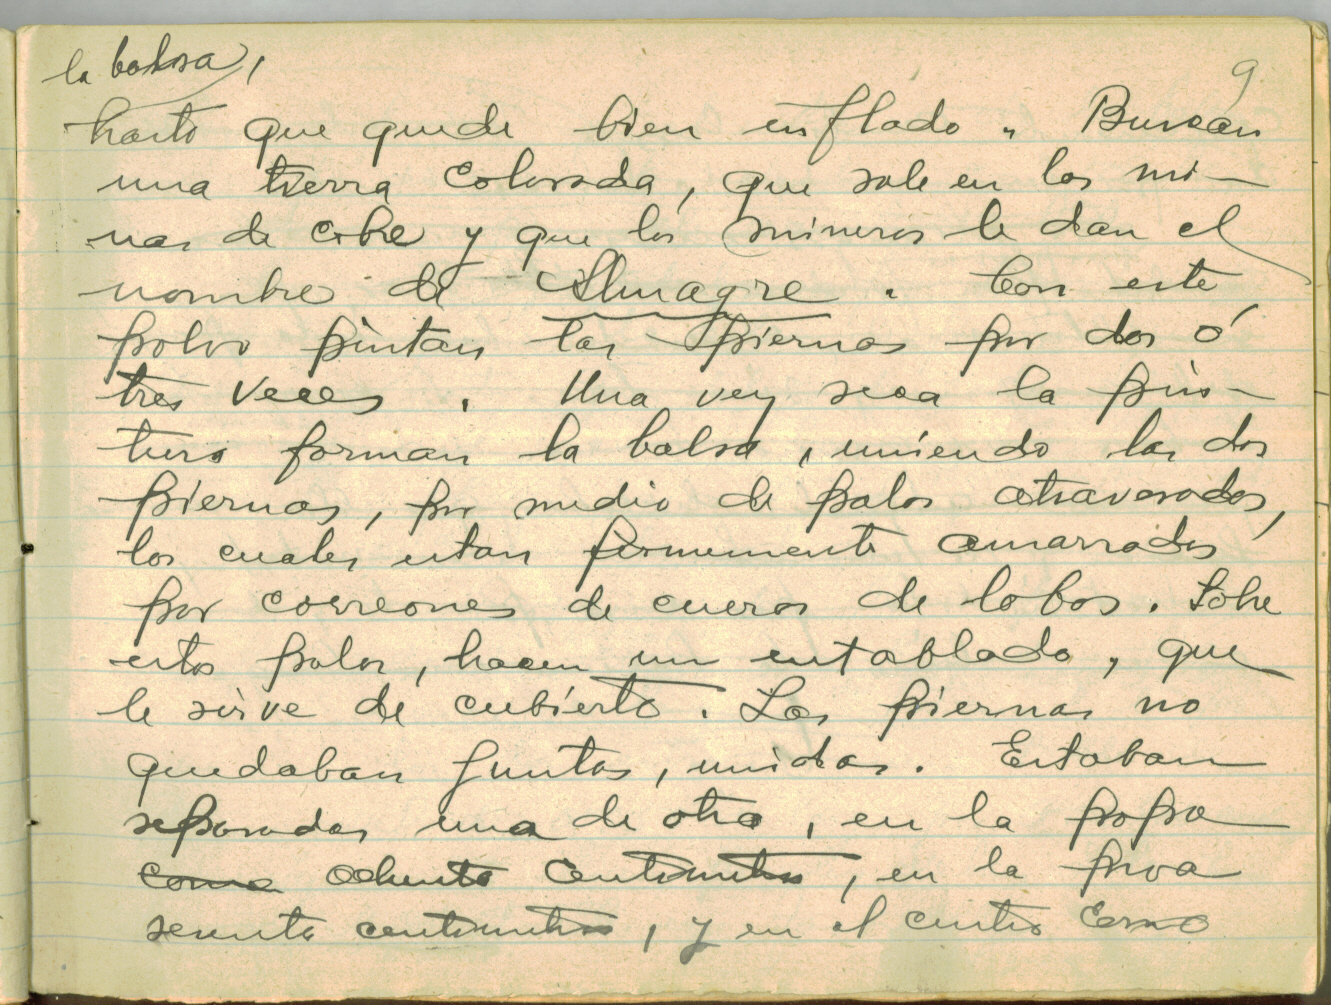 la balsa,
9
hasta que quede bien inflado. Buscan
una tierra colorada, que sale en las mi-
nas de cobre y que los mineros le dan el
nombre de Almagre. Con este
polvo pintan las piernas por dos ó
tres veces. Una vez seca la pin-
tura forman la balsa, uniendo las dos
piernas, por medio de palos atravesados,
los cuales estan firmemente amarrados
por correones de cueros de lobos. Sobre
estos palos, hacen un entablado, que
le sirve de cubierta. Las piernas no
quedaban juntas, unidas. Estaban
separadas una de otra, en la popa
como ochenta centimetros, en la proa
sesenta centimetros, y en el centro como